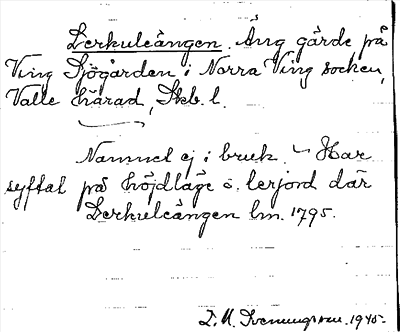 Lerkuleängen. Äng gärde på
Ving Sjögården i Norra Ving socken,
Valle härad, Skb. l.
Namnet ej i bruk. Har
syftat på höjdläge o. lerjord där
Lerkuleängen lm. 1795.
L. M. Svenungsson. 1945.